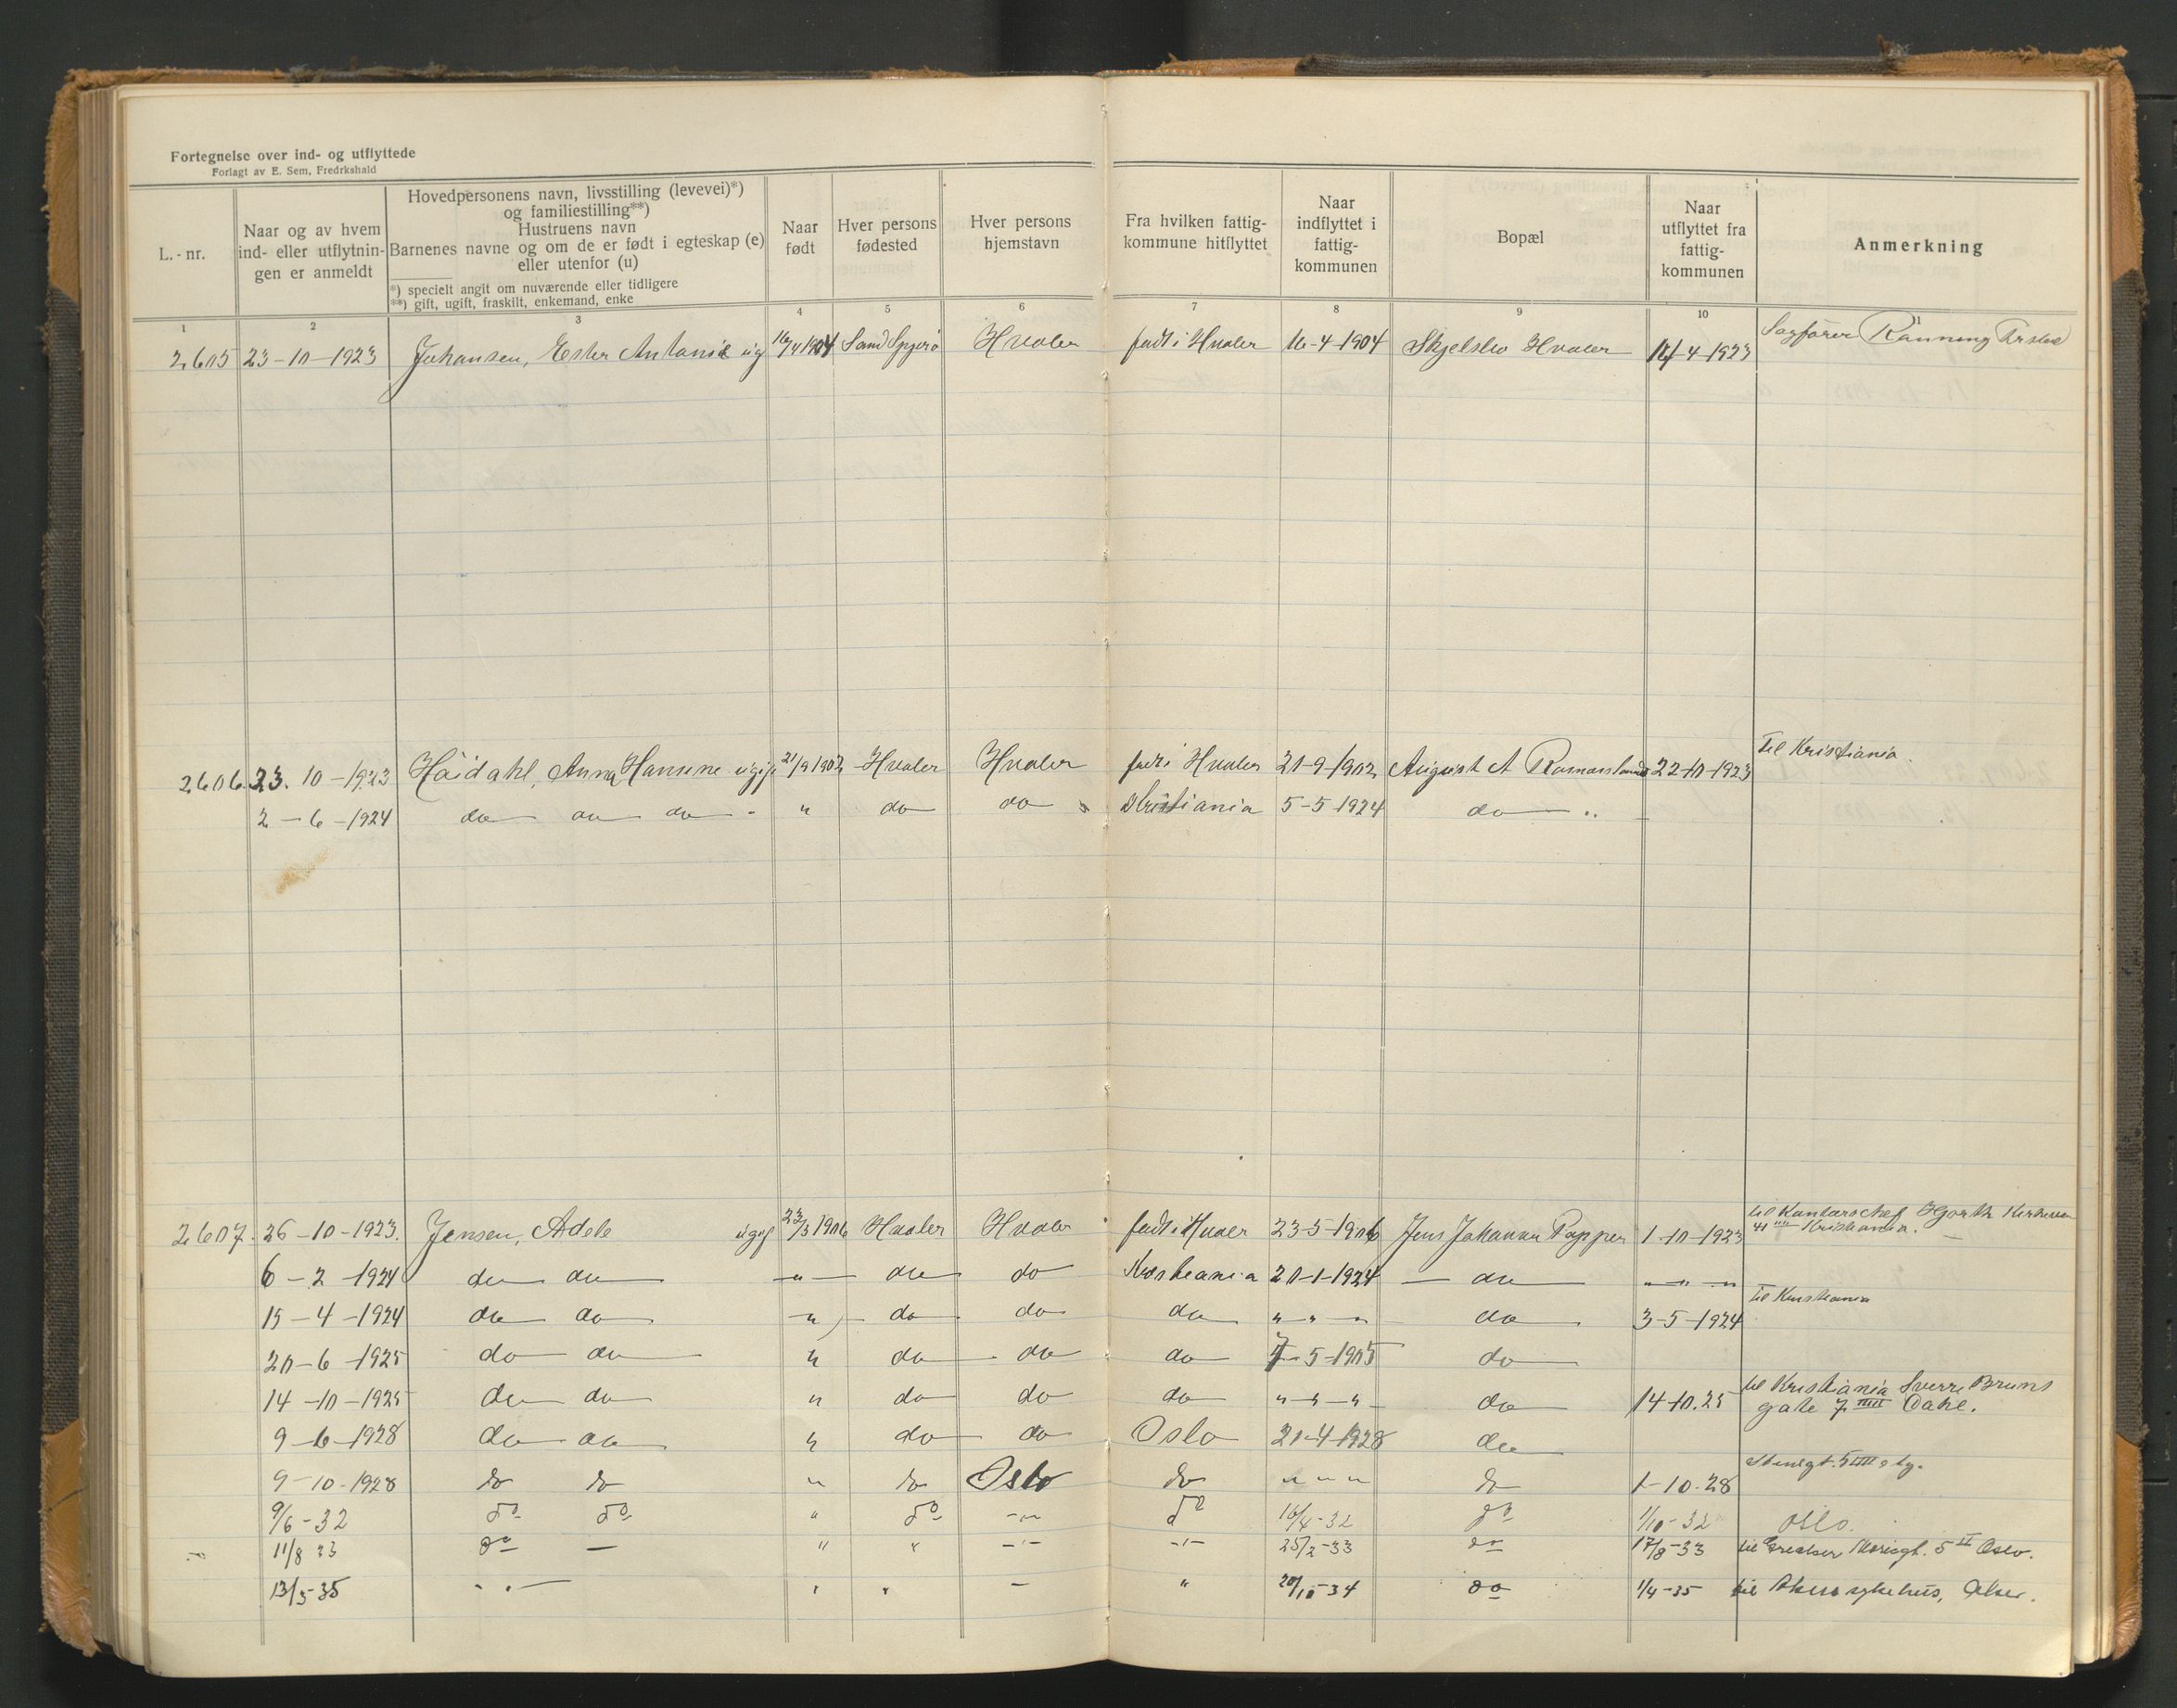 Fortegnelse over ind- og utflyttede
Forlagt av E. Sem, Fredrkshald
L.-nr.
Naar og av hvem
ind- eller utflytnin-
gen er anmeldt
Hovedpersonens navn, livsstilling (levevei)*)
og familiestilling**)
Hustruens navn
Barnenes navne og om de er født i egteskap (e)
eller utenfor (u)
*) specielt angit om nuværende eller tidligere
**) gift, ugift, fraskilt, enkemand, enke
Naar
født
Hver persons
fødested
Hver persons
hjemstavn
Fra hvilken fattig-
kommune hitflyttet
Naar
indflyttet i
fattig-
kommunen
Bopæl
Naar
utflyttet fra
fattig-
kommunen
Anmerkning
1 2 3 4 5 6 7 8 9 10 11
2605 23-10-1923 Johansen, Ester Antonie ug 16/4 1904 Sand Hvaler født i Hvaler 16-4-1904 Skjelsbo Hvaler 14-4-1923 Sagfører Rønning
2606 23.10-1923 Høidahl, Anna Hansine ugift 21/9 1902 Hvaler Hvaler født i Hvaler 21-9-1902 August A 22-10-1923 Til Kristiania.
2-6-1924 do do do - " do do Kristiania 5-5-1924 do
2607. 26-10-1923. Jensen, Adele ugift 23/5 1906 Hvaler Hvaler født i Hvaler 23-5-1906 Jens Johannes Papper 1-10-1923 til Kontorschef Hjorth Kristiania.
6-2-1924 do do -"- do do Kristiania 20-1-1924 - do -"-"
15-4-1924 do do -"- do do do " " " do 3-5-1924 til Kristiania
20-6-1925 do do " do do do 7-5-1905 do
14-10-1925 do do " do do do "-"-" do 14-10.25 til Kristiania Sverre Bruns
gate 7 IIII Dahl.
9-6-1928 do do " do do Oslo 21-4-1928 do
9-10-1928 do do " do Oslo do " " " do 1-10-28 Stensgt. 5 IIII etg.
9/6-32 do do " do -"- do 16/4-32 do 1/10-32 Oslo.
11/8 33 do - " " -"- -"- 25/2-33 do 17/8-33 til 5 II Oslo.
13/3-35 -"- " " - " 20/10-34 do 1/4-35 til Aker sykehus, Aker.